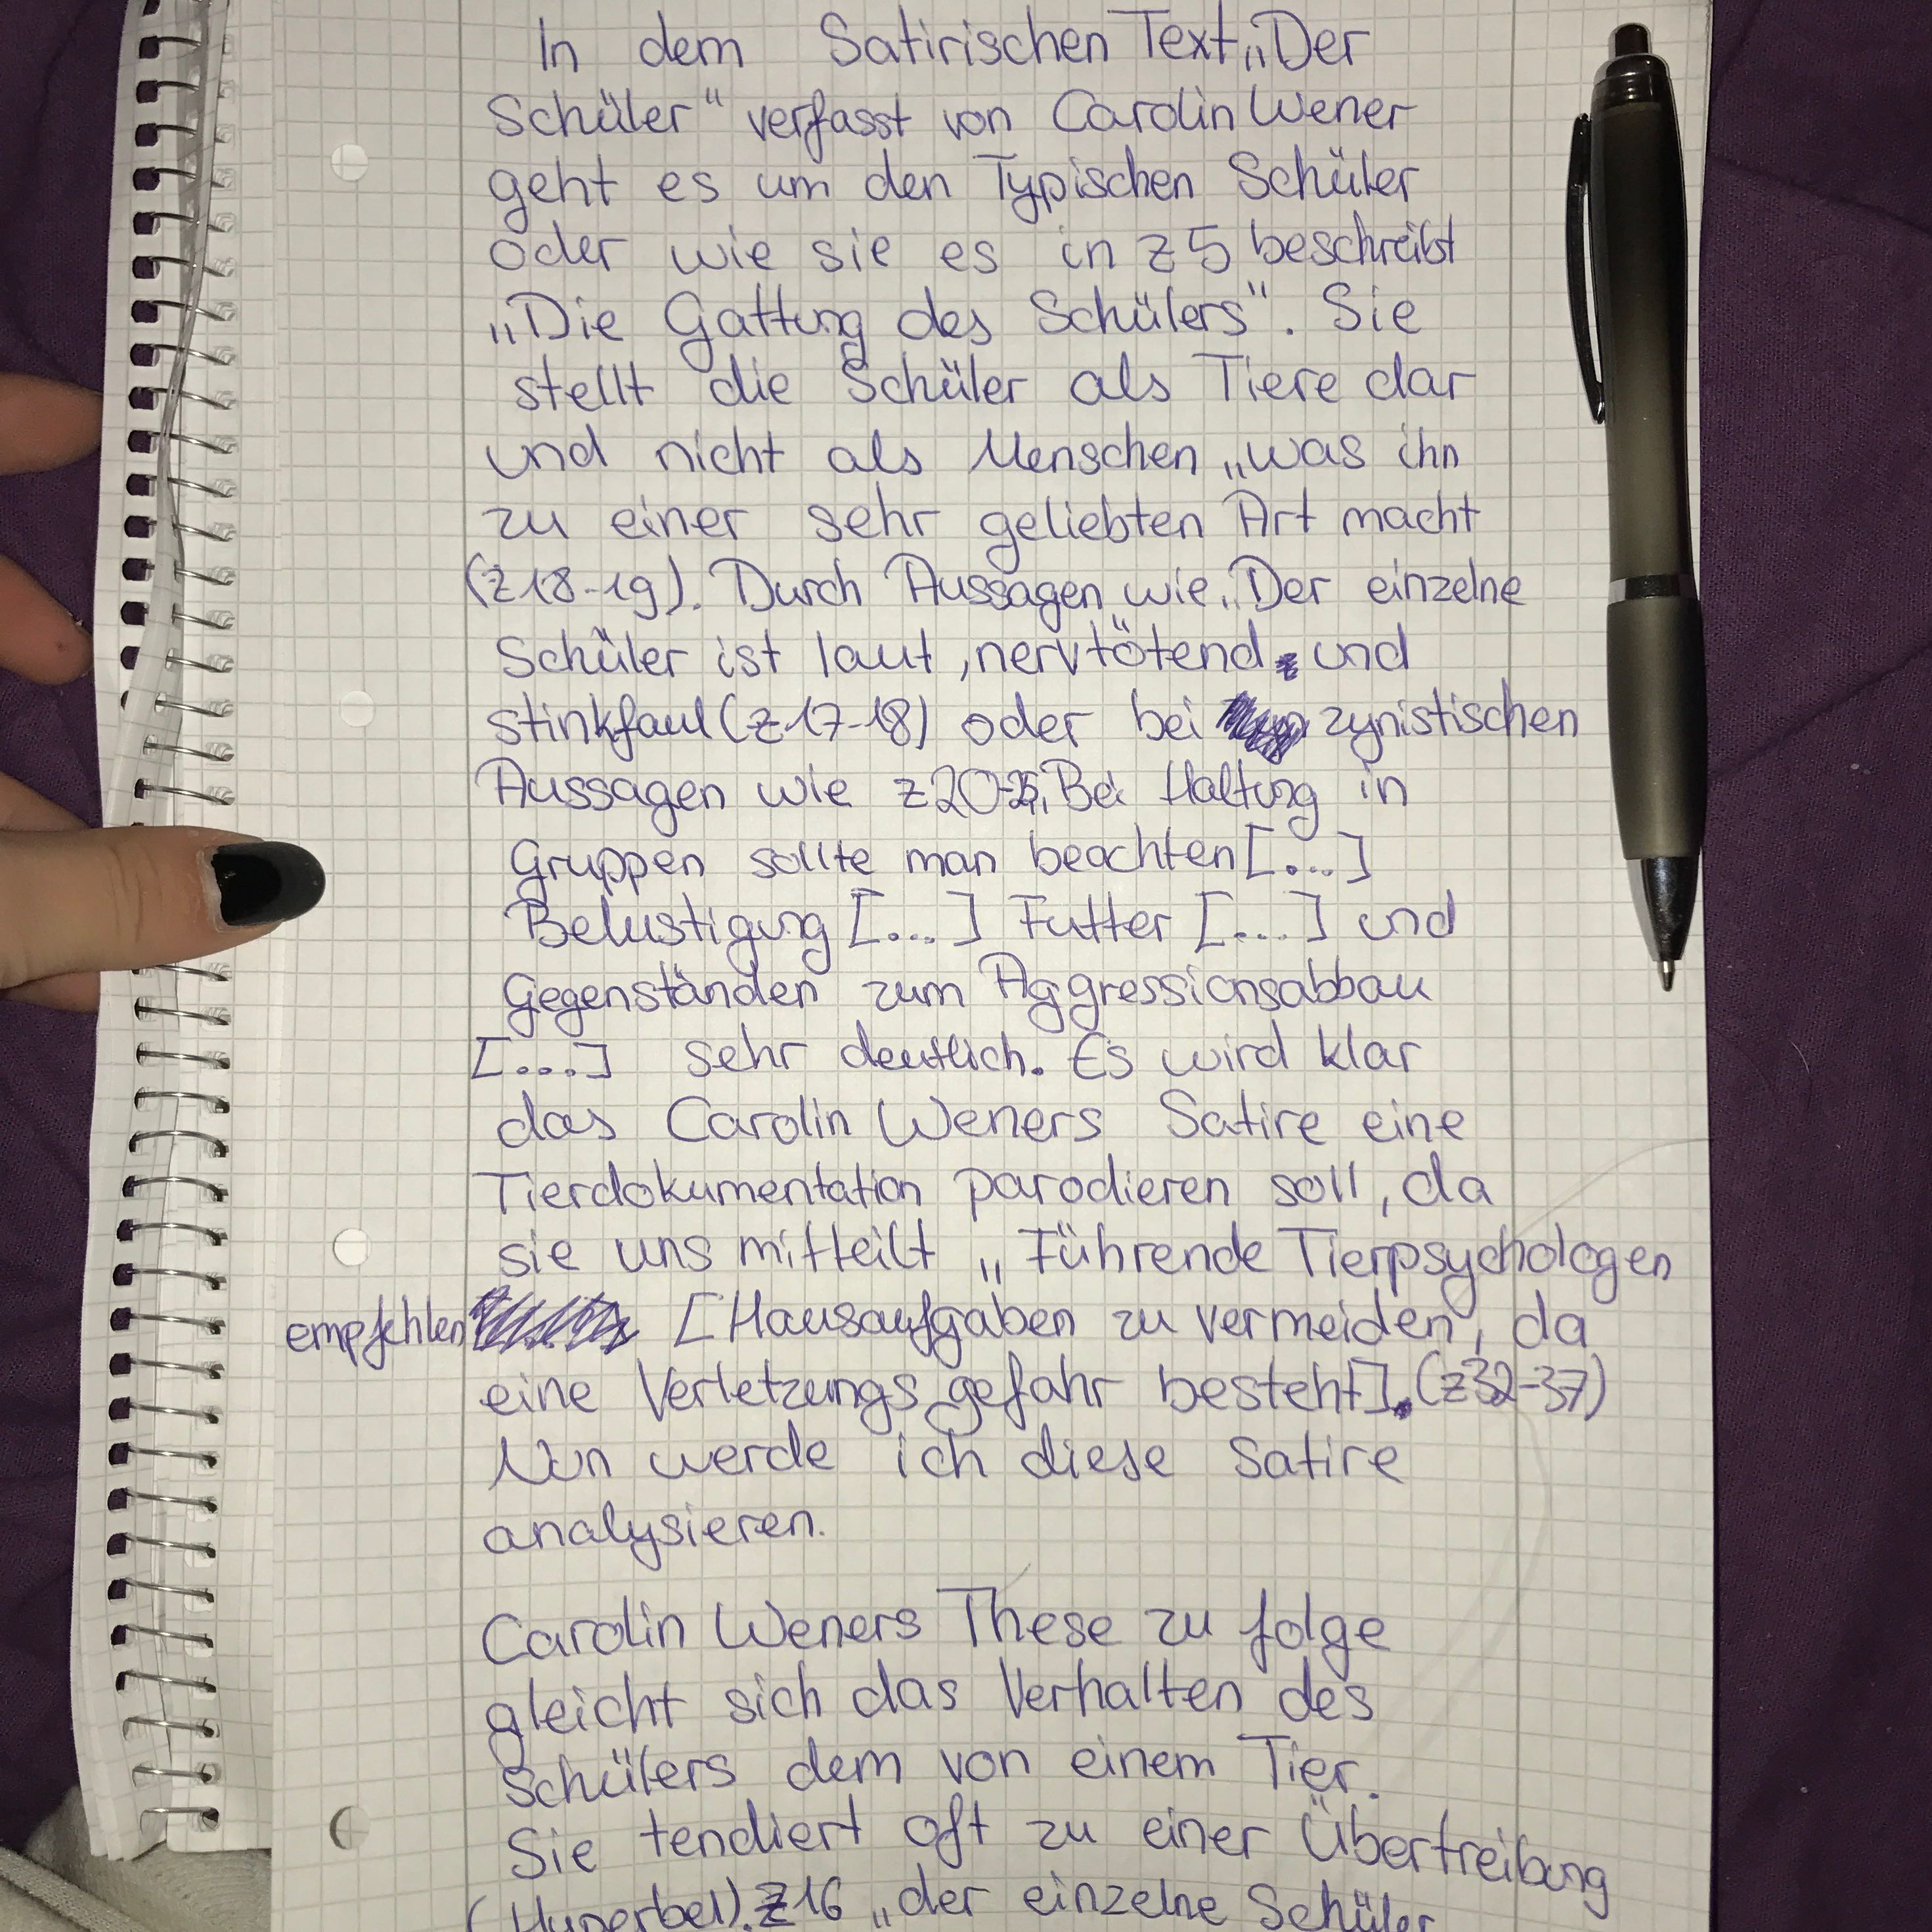 In dem Satirischen Text „Der
Schüler" verfasst von Carolin Wener
geht es um den Typischen Schüler
oder wie sie es in Z5 beschreibt
„Die Gattung des Schülers". Sie
stellt die Schüler als Tiere dar
und nicht als Menschen „was ihn
zu einer sehr geliebten Art macht
(Z18-19). Durch Aussagen wie „Der einzelne
Schüler ist laut, nervtötend und
stinkfaul (Z17-18) oder bei zynistischen
Aussagen wie Z20-25 „Bei Haltung in
Gruppen sollte man beachten [...]
Belustigung [...] Futter [....] und
Gegenständen zum Aggressionsabbau
[....] sehr deutlich. Es wird klar
das Carolin Weners Satire eine
Tierdokumentation parodieren soll, da
sie uns mitteilt „Führende Tierpsychologen
empfehlen [Hausaufgaben zu vermeiden, da
eine Verletzungsgefahr besteht]. (Z32-37)
Nun werde ich diese Satire
analysieren.
Carolin Weners These zu folge
gleicht sich das Verhalten des
Schülers dem von einem Tier.
Sie tendiert oft zu einer Übertreibung
(Hyperbel). Z16 „der einzelne Schüler